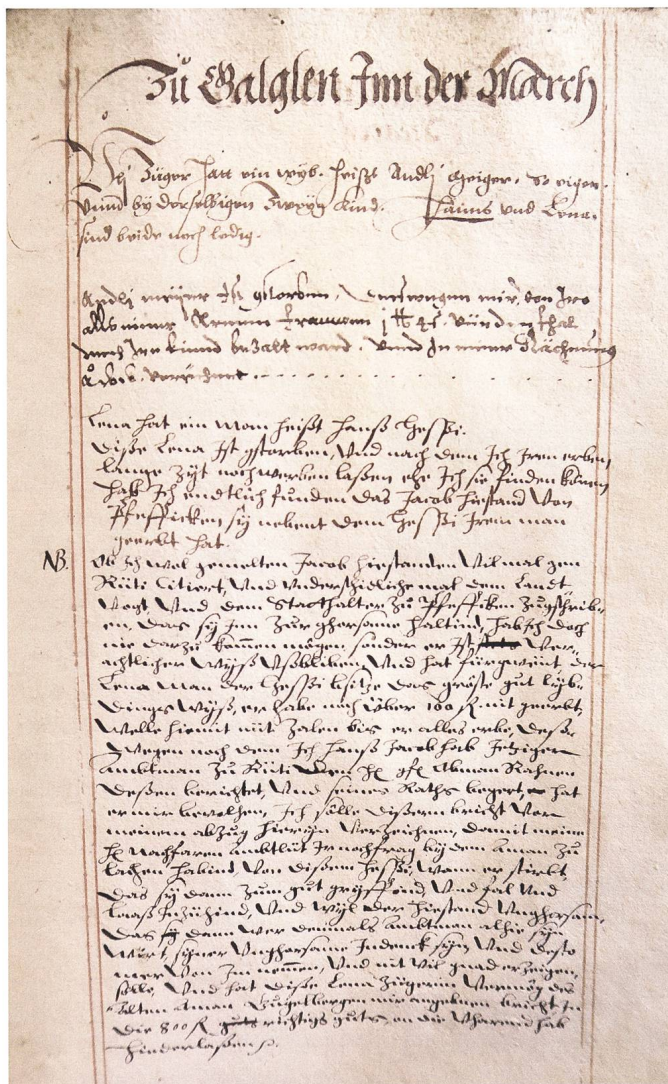 Zů Galglen Inn der March
Ůlj Züger hatt ein wyb. heißt Andlj Geiger. So eigen.
Vnnd by derselbigen Zweyg kind. Hanns vnd Lena.
sind beide noch ledig.
Andlj meyer Ist gstorben, deßwegen mir von Iro
alls einer Armen frauwen j ℔ 5 ß. für den fhal
noch Ire kinnd bezalt ward. Vnnd In meiner Rächnung
Lena hat ein Man heißt Hanß Heßßi.
Diße Lena Ist gstorben, Vnd nach dem Ich Iren erben,
lange Zyt nachwerben laßen ehe Ich sie finden können
hab Ich endtlich funden das Jacob Hiestand Von
Pfefficken sy nebent dem Heßßi Irem man
geerbt hat.
NB. Ob Ich wol gemelten Jacob Hiestanden Vil mal gen
Rüti Citiert, Vnd Vnderschidliche mal dem Landt
Vogt, Vnd dem Statthalter Zů Pfefficken Zůgschrib-
en, das sy Inn Zur ghorsame haltind, hab Ich doch
nie darzu kommen mögen, sonder er Ist Ver-
achtlicher Wyß Vßbliben, Vnd hat fürgwent der
Lena Man der Heßßi besitze das gröste gut lyb-
dings Wyß, er habe noch über 100 R nit geerbt,
Welle hiemit nüt Zalen bis er alles erbe, deße
Wegen nach dem Ich Hanß Jacob hab Jetziger
Ambtman Zů Rüti Den Hr. Obman Rahnen
deßen berichtet, Vnd seines Raths begert, hat
er mir bevolhen, Ich sölle dißern bricht Vor
meinem abzug hieryn Verzeichnen, damit meine
Hr. Nachfaren Ambtlüt Ir nachfrag by dem Aman Zů
Lachen habind, Von dißem Heßßi, Wann er sterbe,
das sy dann Zum gut gryffind, Vnd fal Vnd
laaß Inzüchind, Vnd Wyl der Hiestand Vnghorsam,
das dann Wer denmals Ambtman alhie syn
Wirt, syner Vnghorsame Indenck syn, Vnd desto
mer Von Im nemmen, Vnd nit Vil gnad erzeigen
sölle, Vnd hat diße Lena Zügerin Vermög des
alten Aman mir angebnen bricht, In
die 800 R richtigs guts, an die Vharend hab
hinderlaßen.